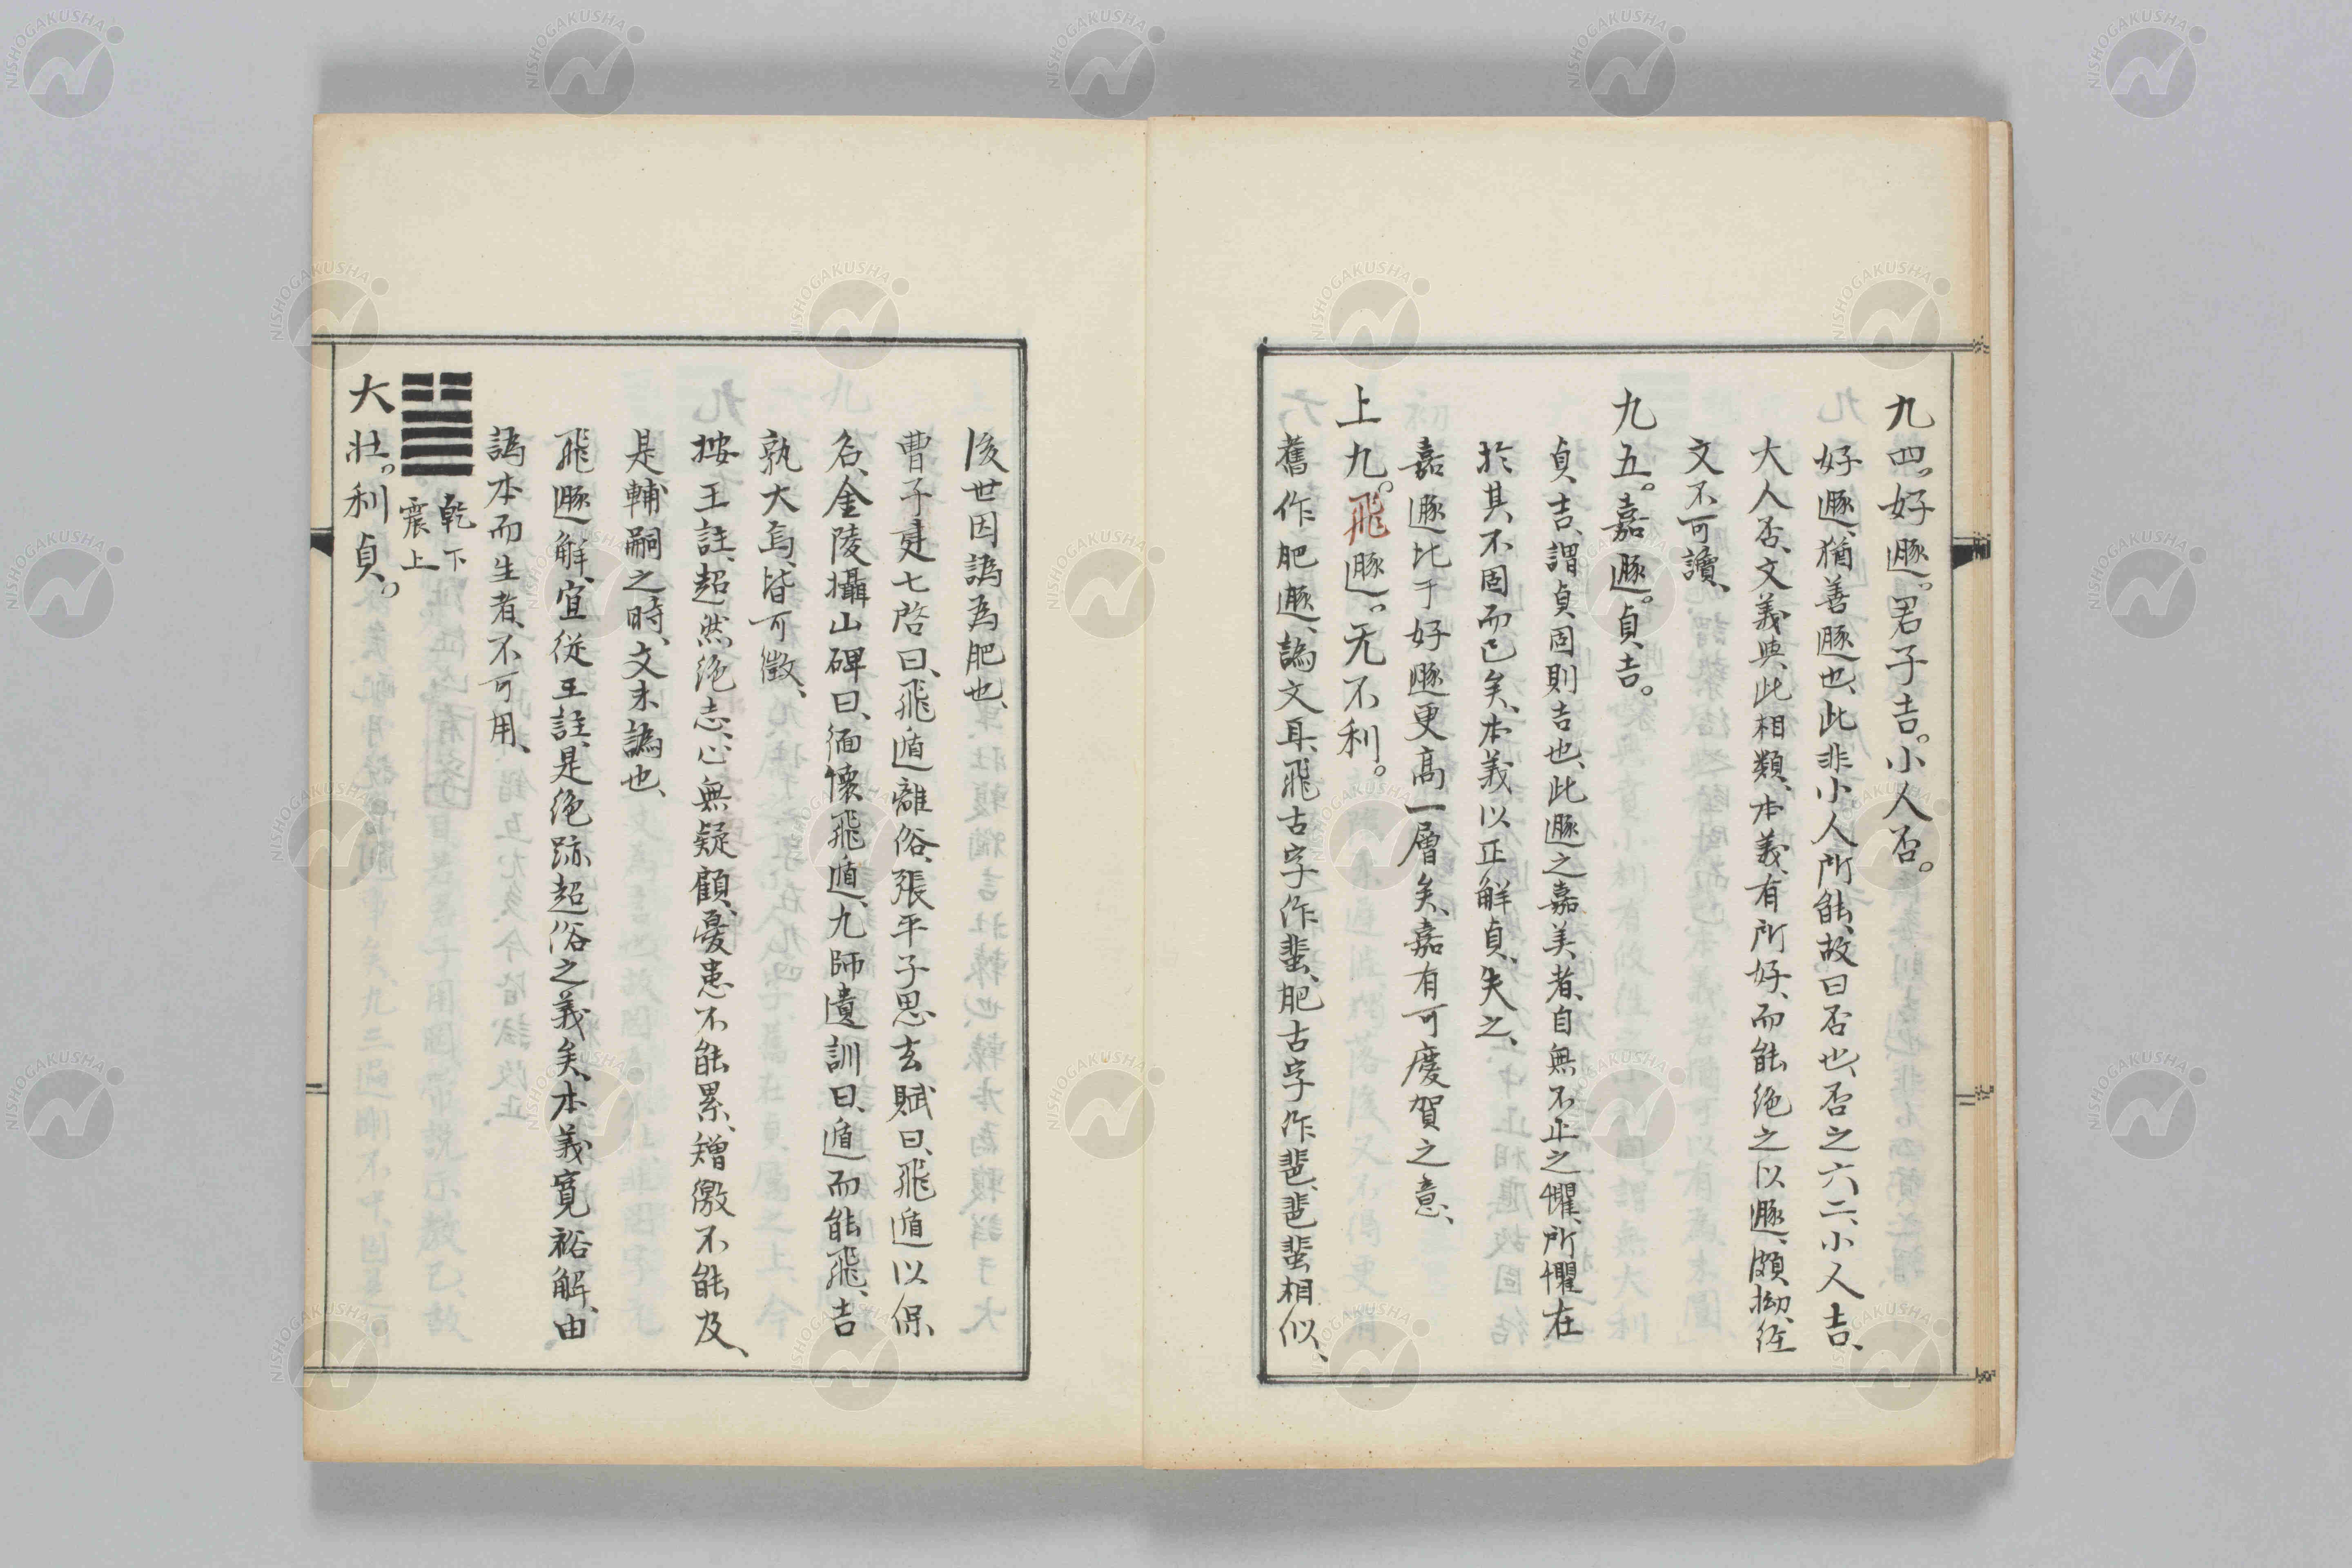 九四。好遯。君子吉。小人否。
好遯、猶善遯也、此非小人所能、故曰否也、否之六二、小人吉、
大人否、文義與此相類、本義、有所好、而能絶之以遯、頗拗、経
文不可讀、
九五。嘉遯。貞吉。
貞吉、謂貞固則吉也、此遯之嘉美者、自無不正之懼、所懼在
於其不固而已矣、本義以正解貞、失之、
嘉遯比于好遯更高一層矣、嘉有可慶賀之意、
上九。飛遯。无不利。
舊作肥遯、譌文耳、飛古字作蜚、肥古字作𦐛、相似、
後世因譌為肥也、
曹子建七啓曰、飛遁離俗、張平子思玄賦曰、飛遁以保
名、金陵攝山碑曰、緬懷飛遁、九師遺訓曰、遁而能飛、吉
孰大焉、皆可徵、
按王註、超然絶志、心無疑顧、憂患不能累、矰繳不能及、
是輔嗣之時、文未譌也、
飛遯解、宜從王註、是絶跡超俗之義矣、本義寛裕解、由
譌本而生者、不可用、
乾下
震上
大壯。利貞。
NISHOGAKUSHA